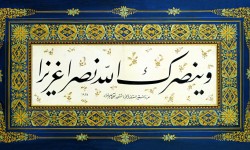 وينصرك الله نصرا عزيزا